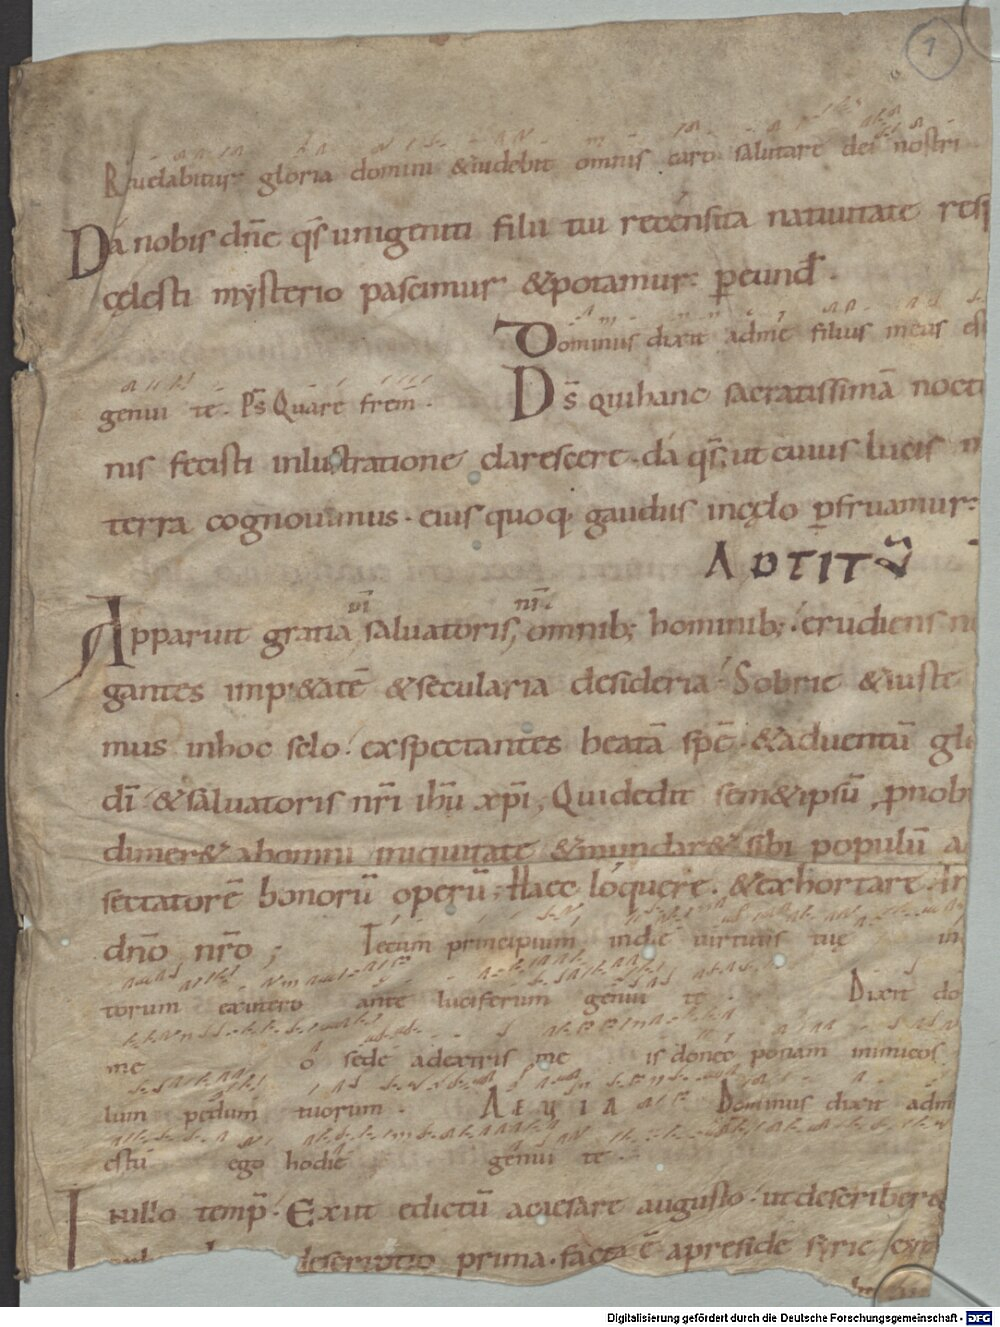 1
Reuelabitur gloria domini &uidebit omnis caro salutare dei nostri
Da nobis dñe qs unigeniti filii tui recensita natiuitate resp
cęlesti mysterio pascimur &potamur. p eund.
Dominus dixit adme filius meus es
genui te. Ps Quare frem.
Ds qui hanc sacratissimā nocte
nis fecisti inlustratione clarescere. da qs. ut cuius lucis m
terra cognouimus. eius quoq gaudiis incęlo pfruamur.
AD TITŪ
Apparuit gratia dī saluatoris nri omnib; hominib; erudiens n
gantes impi&atē &secularia desideria. Sobrie &iuste
mus inhoc sclo. exspectantes beatā spē. &aduentū glo
dī &saluatoris nrī ihū xpī, Qui dedit sem&ipsū pnob
dimer& abomni iniquitate &mundar& sibi populū a
sectatorē bonorū operū; Haec loquere. &exhortare. In
dño nrō;
Tecum principium indie uirtutis tuę in
torum exutero ante luciferum genui te.
Dixit do
me o sede adextris me is donec ponam inimicos
lum pedum tuorum.
AEUIA
Dominus dixit adm
estu ego hodie genui te.
In illo temp. Exiit edictū acaesare augusto. ut describer&
descriptio prima. facta ē apreside syrie